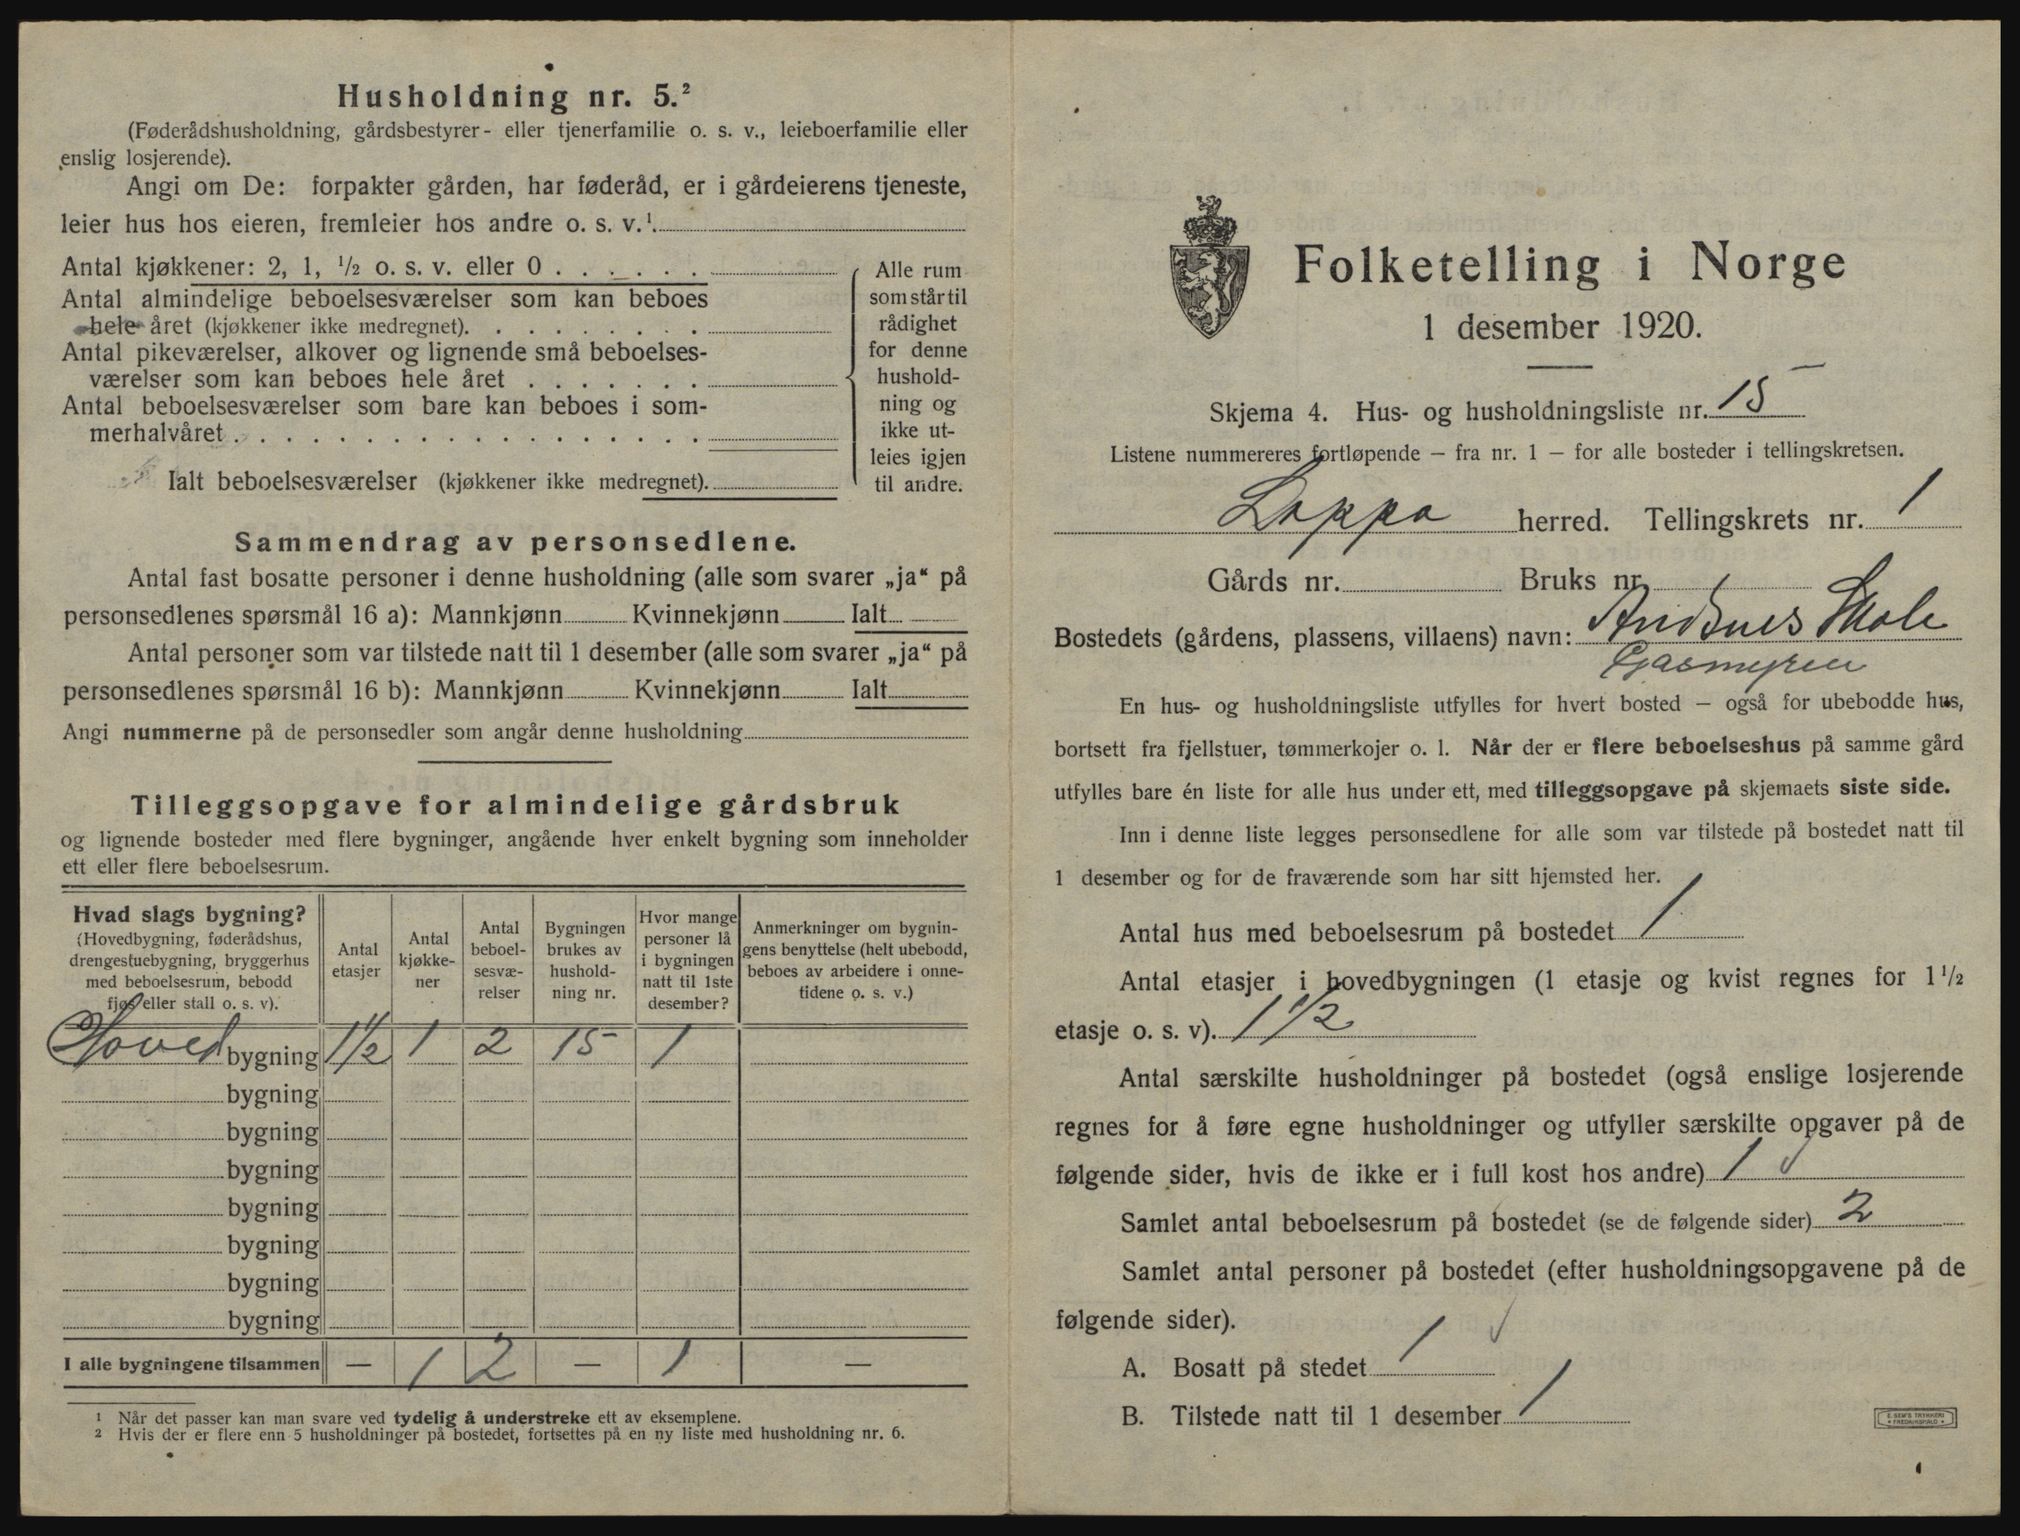 Husholdning nr. 5.²
(Føderådshusholdning, gårdsbestyrer- eller tjenerfamilie o. s. v., leieboerfamilie eller
enslig losjerende).
Angi om De: forpakter gården, har føderåd, er i gårdeierens tjeneste,
leier hus hos eieren, fremleier hos andre o. s. v.¹.
Antal kjøkkener: 2, 1, ½ o. s. v. eller 0 . . . . . .
Antal almindelige beboelsesværelser som kan beboes
hele året (kjøkkener ikke medregnet). . . . . . . . .
Antal pikeværelser, alkover og lignende små beboelses-
værelser som kan beboes hele året . . . . . . .
Antal beboelsesværelser som bare kan beboes i som-
merhalvåret . . . . . . . . . . . . . . . . . .
Ialt beboelsesværelser (kjøkkener ikke medregnet).
Alle rum
som står til
rådighet
for denne
hushold-
ning og
ikke ut-
leies igjen
til andre.
Sammendrag av personsedlene.
Antal fast bosatte personer i denne husholdning (alle som svarer „ja“ på
personsedlenes spørsmål 16 a): Mannkjønn Kvinnekjønn Ialt
Antal personer som var tilstede natt til 1 desember (alle som svarer „ja“ på
personsedlenes spørsmål 16 b): Mannkjønn Kvinnekjønn Ialt
Angi nummerne på de personsedler som angår denne husholdning
Tilleggsopgave for almindelige gårdsbruk
og lignende bosteder med flere bygninger, angående hver enkelt bygning som inneholder
ett eller flere beboelsesrum.
Hvad slags bygning?
(Hovedbygning, føderådshus,
drengestuebygning, bryggerhus
med beboelsesrum, bebodd
fjøs eller stall o. s. v).
Antal
etasjer
Antal
kjøkke-
ner
Antal
beboel-
sesvæ-
relser
Bygningen
brukes av
hushold-
ning nr.
Hvor mange
personer lå
i bygningen
natt til 1ste
desember?
Anmerkninger om bygnin-
gens benyttelse (helt ubebodd,
beboes av arbeidere i onne-
tidene o. s. v.)
Hoved bygning 1½ 1 2 15 1
bygning
bygning
bygning
bygning
bygning
bygning
bygning
I alle bygningene tilsammen — 1 2 — 1 —
¹ Når det passer kan man svare ved tydelig å understreke ett av eksemplene.
² Hvis der er flere enn 5 husholdninger på bostedet, fortsettes på en ny liste med husholdning nr. 6.
Folketelling i Norge
1 desember 1920.
Skjema 4. Hus- og husholdningsliste nr. 15
Listene nummereres fortløpende — fra nr. 1 — for alle bosteder i tellingskretsen.
Loppa herred. Tellingskrets nr. 1
Gårds nr. Bruks nr.
Bostedets (gårdens, plassens, villaens) navn: Andsnes Skole
Gasmyren
En hus- og husholdningsliste utfylles for hvert bosted — også for ubebodde hus,
bortsett fra fjellstuer, tømmerkojer o. l. Når der er flere beboelseshus på samme gård
utfylles bare én liste for alle hus under ett, med tilleggsopgave på skjemaets siste side.
Inn i denne liste legges personsedlene for alle som var tilstede på bostedet natt til
1 desember og for de fraværende som har sitt hjemsted her.
Antal hus med beboelsesrum på bostedet 1
Antal etasjer i hovedbygningen (1 etasje og kvist regnes for 1½
etasje o. s. v). 1½
Antal særskilte husholdninger på bostedet (også enslige losjerende
regnes for å føre egne husholdninger og utfyller særskilte opgaver på de
følgende sider, hvis de ikke er i full kost hos andre) 1
Samlet antal beboelsesrum på bostedet (se de følgende sider) 2
Samlet antal personer på bostedet (efter husholdningsopgavene på de
følgende sider).
A. Bosatt på stedet 1
B. Tilstede natt til 1 desember 1
E. SEM'S TRYKKERI
FREDRIKSHALD